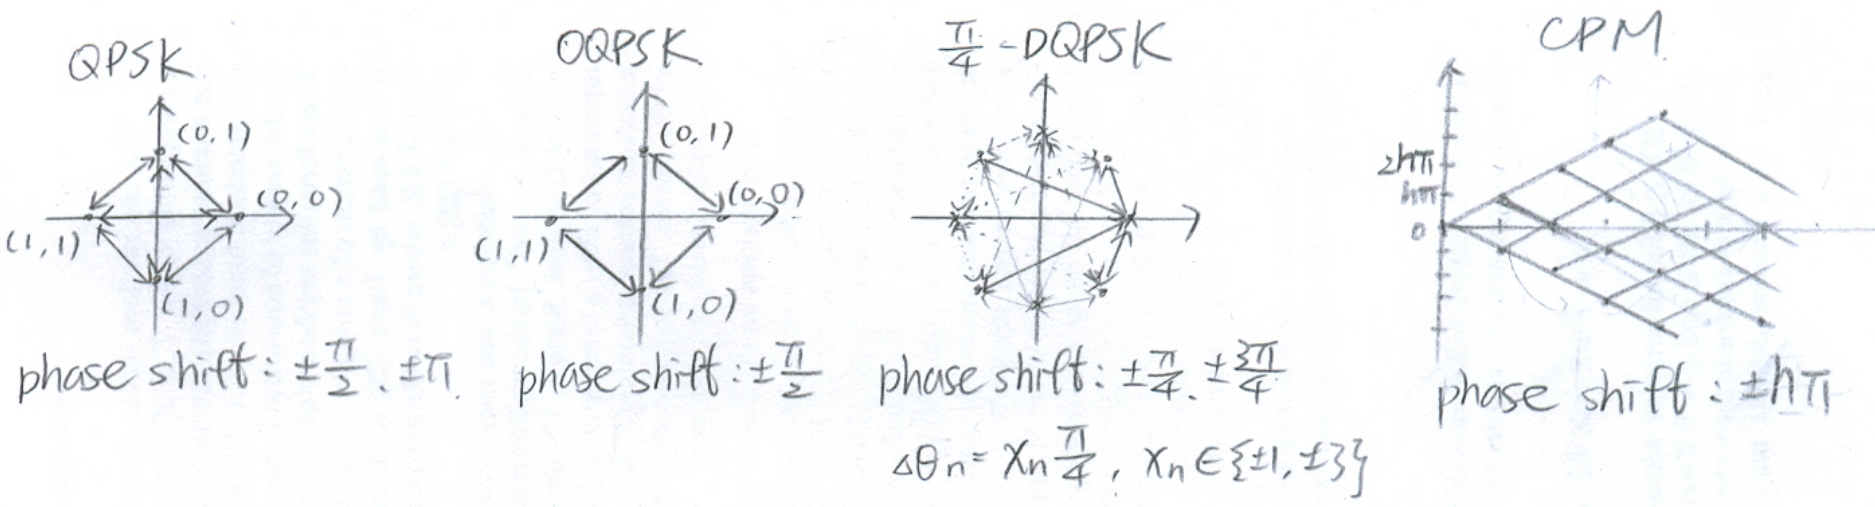 QPSK
(0,1)
(0,0)
(1,1)
(1,0)
phase shift: ±π/2, ±π.
OQPSK
(0,1)
(0,0)
(1,1)
(1,0)
phase shift: ±π/2
π/4-DQPSK
phase shift: ±π/4, ±3π/4
Δθn = Xn π/4, Xn ∈ {±1, ±3}
CPM
2hπ
hπ
0
phase shift: ±hπ